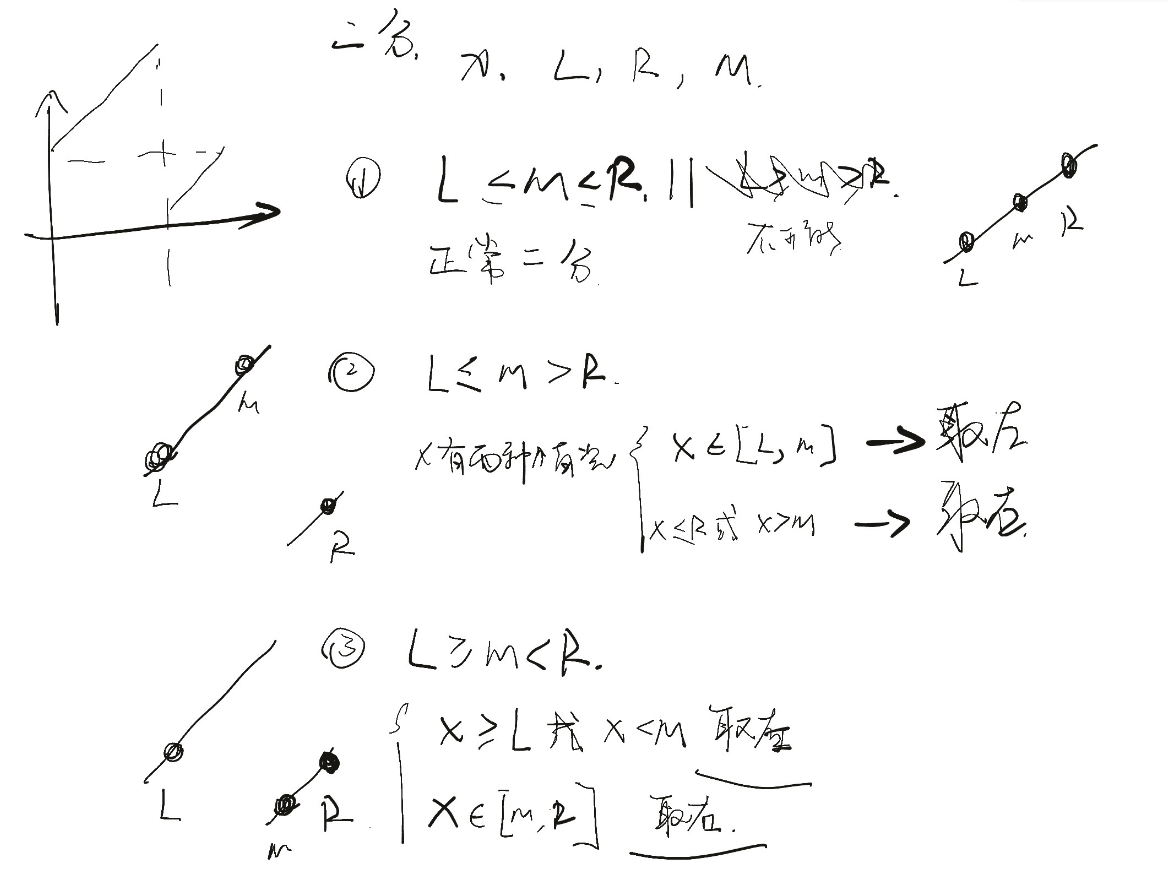 二分.
x. L, R, M.
① L ≤ m ≤ R. || L ≥ m ≥ R.
不可能
正常二分.
L m R
② L ≤ m > R.
L m R
x有两种
x ∈ [L, m] → 取左
x ≤ R 或 x > m → 取右.
③ L ≥ m < R.
L m R
x ≥ L 或 x < m 取左
x ∈ [m, R] 取右.